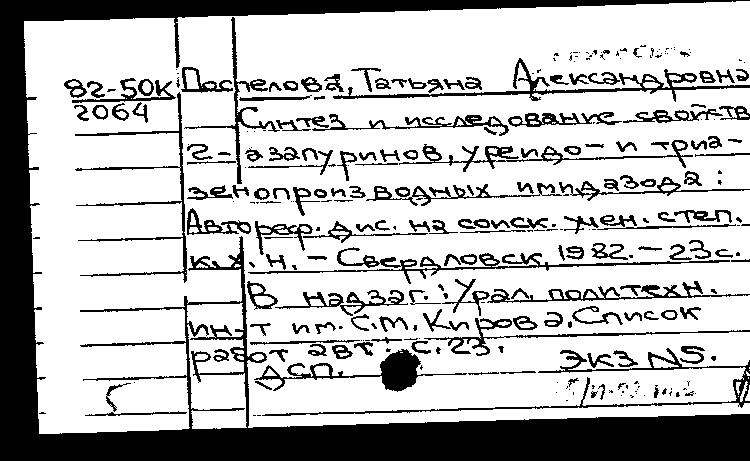 82-50К Поспелова, Татьяна Александровна
2064
Синтез и исследование свойств
2-азапуринов, уреидо- и триа-
зенопроизводных имидазола:
Автореф. дис. на соиск. учен. степ.
к. х. н. - Свердловск, 1982. - 23с.
В надзаг.: Урал. политехн.
ин-т им. С.М. Кирова. Список
работ авт.: с. 23.
ДСП. ЭКЗ N5.
5